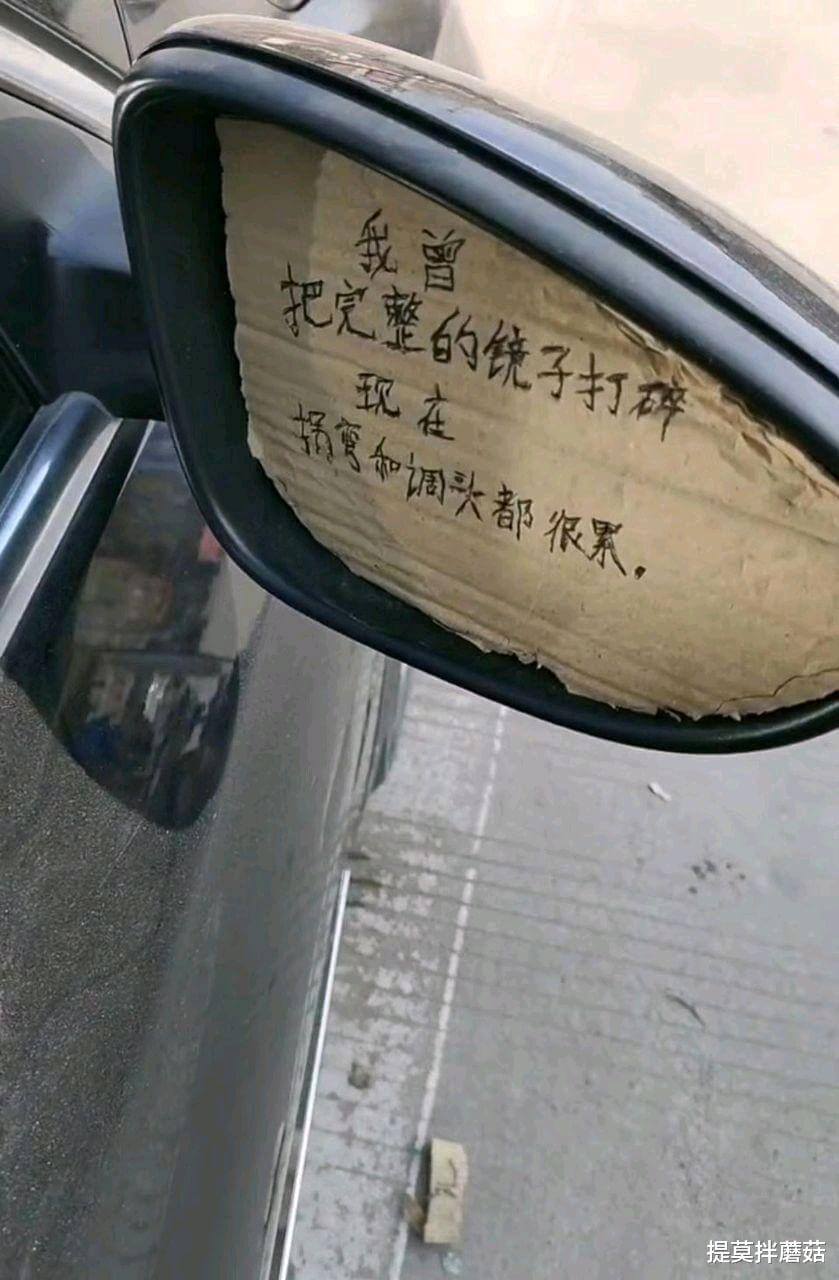 我曾
把完整的镜子打碎
现在
拐弯和调头都很累。
提莫拌蘑菇